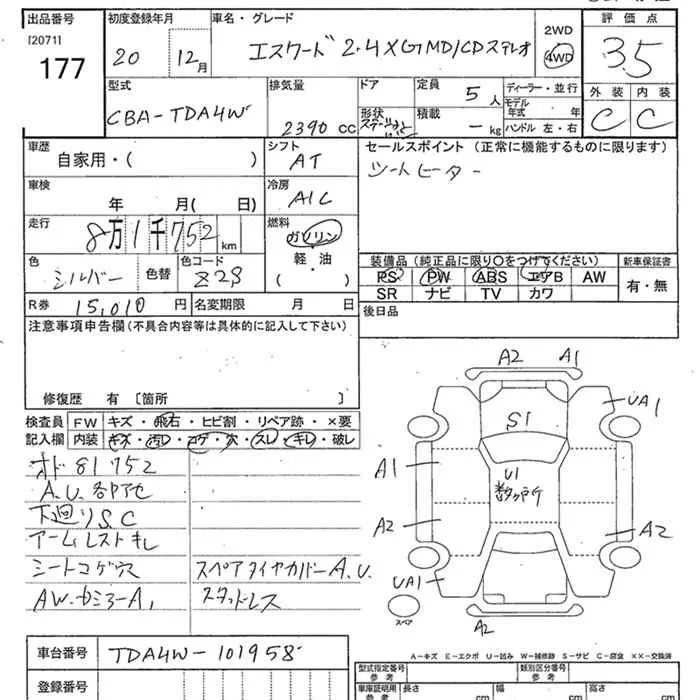 出品番号 [2071] 177
初度登録年月 20 12月
車名・グレード エスクード 2.4 XG MD/CDステレオ
2WD 4WD
評価点 3.5
外装 C 内装 C
型式 CBA-TDA4W
排気量 2390 cc
ドア 形状
定員 5人
積載 - kg
ディーラー・並行
モデル年式 年
ハンドル 左・右
車歴 自家用・( )
シフト AT
セールスポイント (正常に機能するものに限ります)
シートヒーター
車検 年 月( 日)
冷房 A/C
走行 8万1千752 km
燃料 ガソリン 軽油 ・ ( )
色 シルバー 色替 色コード Z2S
装備品(純正品に限り〇をつけてください) 新車保証書
PS PW ABS エアB AW 有・無
SR ナビ TV カワ
R券 15,010 円 名変期限 月 日
後日品
注意事項申告欄(不具合内容等は具体的に記入して下さい)
修復歴 有 〔箇所 〕
検査員記入欄 FW キズ・飛石・ヒビ割・リペア跡・×要
内装 キズ・汚レ・コゲ・穴・スレ・キレ・破レ
オド 81752
A.U.各P アセ
下廻りS.C
アームレストキレ
シートコゲ穴
AW.カミラーA1
スペアタイヤカバーA.U.
スタッドレス
A2 A1
UA1
S1
A1
U1
数ヶ所
A2
A2
UA1
スペア
A2
A-キズ E-エクボ U-凹み W-補修跡 S-サビ C-腐食 XX-交換済
車台番号 TDA4W-101958
登録番号
型式指定番号 参考
類別区分番号 参考
車庫証明用 参考 長さ cm 幅 cm 高さ cm